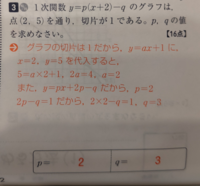 3 1次関数 y=p(x+2)-qのグラフは,
点(2, 5)を通り, 切片が1である。p, qの値
を求めなさい。 【16点】
グラフの切片は1だから, y=ax+1に,
x=2, y=5を代入すると,
5=a×2+1, 2a=4, a=2
また, y=px+2p-qだから, p=2
2p-q=1だから, 2×2-q=1, q=3
p= 2 q= 3